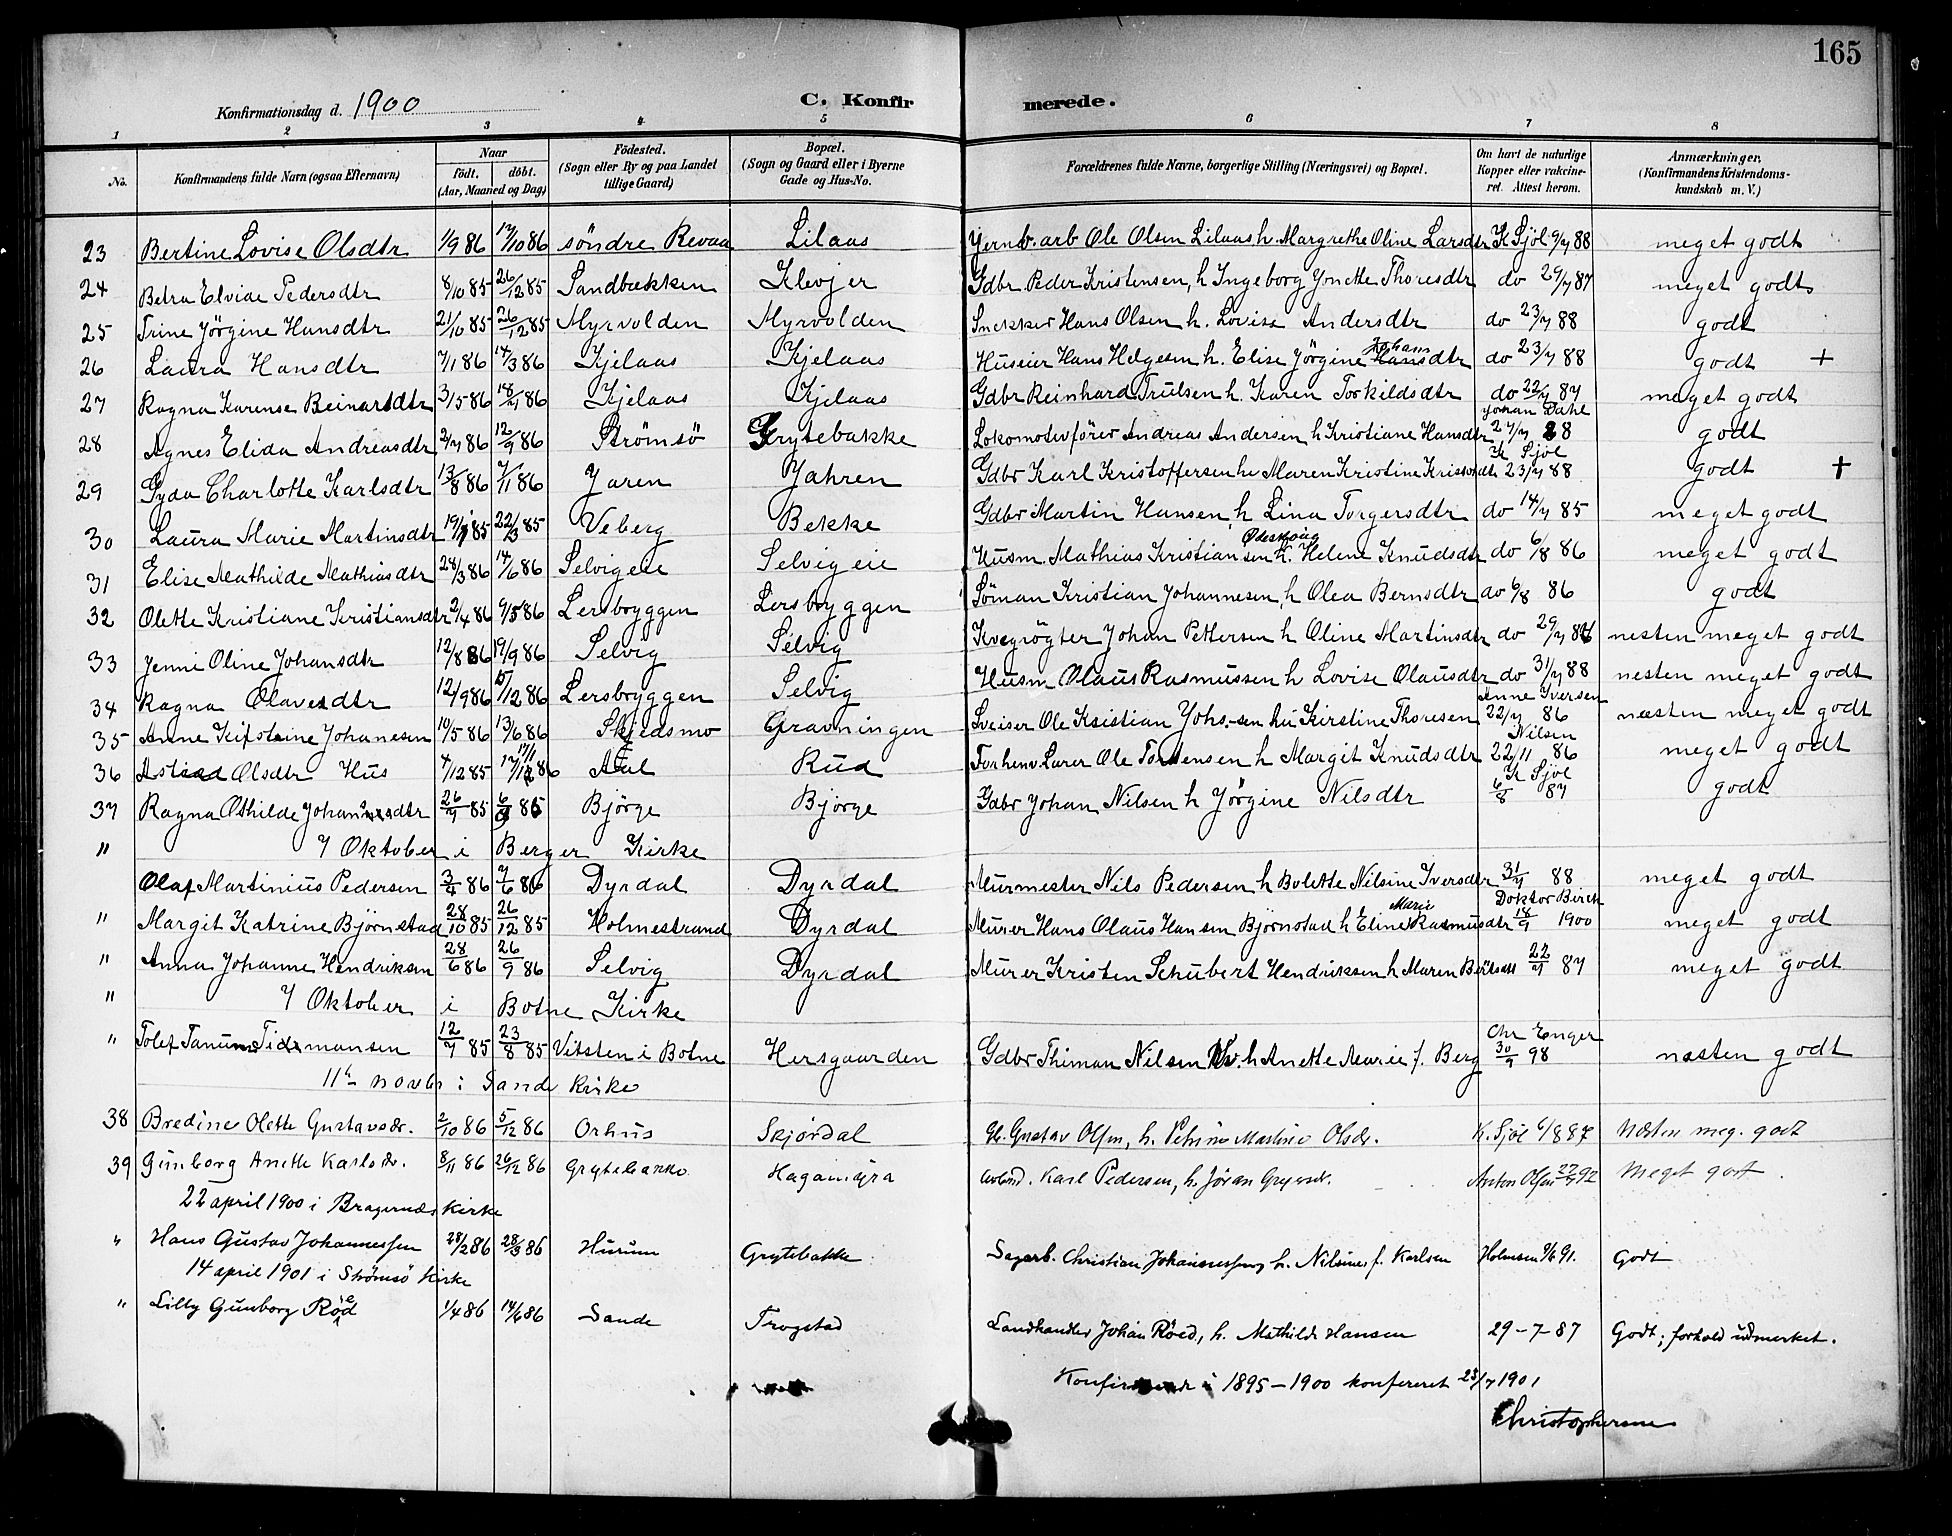 165
Konfirmationsdag d. 1900 C. Konfirmerede.
1 2 3 4 5 6 7 8
No. Konfirmandens fulde Navn (ogsaa Efternavn) Naar født. døbt. (Aar, Maaned og Dag) Fødested. (Sogn eller By og paa Landet tillige Gaard) Bopæl. (Sogn og Gaard eller i Byerne Gade og Hus-No. Forældrenes fulde Navne, borgerlige Stilling (Næringsvei) og Bopæl. Om havt de naturlige Kopper eller vakcineret. Attest herom. Anmærkninger. (Konfirmandens Kristendomskundskab m. V.)
23 Bertine Lovise Olsdtr 1/9 86 17/10 86 söndre Revaa Lilaas Jernb. arb Ole Olsen Lilaas h. Margrethe Oline Larsdtr K Sjöl 9/7 88 meget godt
24 Elvine Pedersdtr 8/10 85 26/12 85 Sandbækken Klevjer Gdbr Peder Kristensen, h Ingeborg Jonette Thoresdtr do 29/7 87 meget godt
25 Trine Jörgine Hansdtr 21/10 85 26/12 85 Myrvolden Myrvolden Snekker Hans Olsen h. Lovise Andersdtr do 23/7 88 godt
26 Laura Hansdtr 7/1 86 14/3 86 Kjelaas Kjelaas Huseier Hans Helgesen h. Elise Jörgine Johansdtr do 23/7 88 godt +
27 Ragna Karense Reinartdtr 3/5 86 18/7 86 Kjelaas Kjelaas Gdbr Reinhard Trulsen h. Karen Torkildsdtr do 22/7 87 meget godt
28 Agnes Elida Andreasdtr 2/7 86 12/9 86 Strömsö Grytebakke Lokomotivförer Andreas Andersen h Kristiane Hansdtr Johan Dahl 27/7 88 godt
29 Gyda Charlotte Karlsdtr 13/8 86 7/11 86 Jaren Jahren Gdbr Karl Kristoffersen h. Maren Kristine K Sjöl 23/7 88 godt +
30 Laura Marie Martinsdtr 19/1 85 22/3 85 Veberg Bekke Gdbr Martin Hansen, h Lina Torgersdtr do 14/7 85 meget godt
31 Elise Mathilde Mathiasdtr 28/3 86 14/6 86 Selvigeie Selvigeie Husm. Mathias Kristiansen h. Helene Knudsdtr do 6/8 86 meget godt
32 Olette Kristiane Kristiansdtr 2/4 86 9/5 86 Lersbryggen Lersbryggen Söman Kristian Johannesen, h Olea Bernsdtr do 6/8 86 godt
33 Jenni Oline Johansdtr 12/8 86 19/9 86 Selvig Selvig Kvegrögter Johan Pettersen h Oline Martinsdtr do 29/7 87 nesten meget godt
34 Ragna Olavesdtr 12/9 86 5/12 86 Lersbryggen Selvig Husm Olaus Rasmussen h Lovise Olausdtr do 31/7 88 nesten meget godt
35 Anne Kirstine Johanesen 10/5 86 13/6 86 Skjedsmo Gravningen Sveiser Ole Kristian Johs.-sen hu Kirstine Thoresen Anne Iversen 22/7 86 næsten meget godt
36 Astrid Olsdtr Hus 4/12 85 17/1 86 Aal Rud Forhenv. Lærer Ole Torstensen h Margit Knudsdtr Nilsen 22/11 86 meget godt
37 Ragna Othilde Johansdtr 26/7 85 6/9 85 Bjórge Bjórge Gdbr Johan Nilsen h Jörgine Nilsdtr K Sjöl 6/8 87 godt
" 7 Oktober i Berger Kirke
Olaf Martinius Pedersen 3/4 86 7/6 86 Dyrdal Dyrdal Murmester Nils Pedersen h Bolette Nilsine Iversdtr 31/7 88 meget godt
" Margit Katrine Bjørnstad 28/10 85 26/12 85 Holmestrand Dyrdal Murer Hans Olaus Hansen Bjørnstad h Eline Marie Rasmusdtr Doktor Birch 18/9 1900 meget godt
" Anna Johanne Hendriksen 28/6 86 26/9 86 Selvig Dyrdal Murer Kristen Schubert Hendriksen h Maren 22/7 87 meget godt
" 7 Oktober i Botne Kirke
" Tolef Tanum Tidemansen 12/7 85 23/8 85 Vitsten i Botne Hersgaarden Gdbr Thiman Nilsen h Anette Marie f. Berg Chr Enger 30/9 98 næsten godt
11te novbr i Sande Kirke
38 Bredine Olette Gustavsdr. 2/10 86 5/12 86 Orhus Skjördal Gb. Gustav Olsen, h. Petrine Martine Olsdr. K. Sjöl 6/8 87 Næsten meg. godt
39 Gunborg Anette Karlsdr. 8/11 86 26/12 86 Grytebakke Hagamyra Arbmd. Karl Pedersen, h. Jöran Anton Olsen 22/7 92 Meget godt
22 april 1900 i Bragernæs Kirke
" Hans Gustav Johannessen 28/2 86 28/3 86 Hurum Grytebakke Sagarb. Christian Johannessen, h. Nilsine f. Karlsen Holmsen 9/6 91. Godt
14 april 1901 i Strömsö Kirke
" Lilly Gunborg Röed 1/4 86 14/6 86 Sande Trogstad Landhandler Johan Röed, h. Mathilde Hansen 29-7-87 Godt; forhold udmerket.
Konfirmerede i 1895-1900 konfereret 23/7 1901
Christophersen